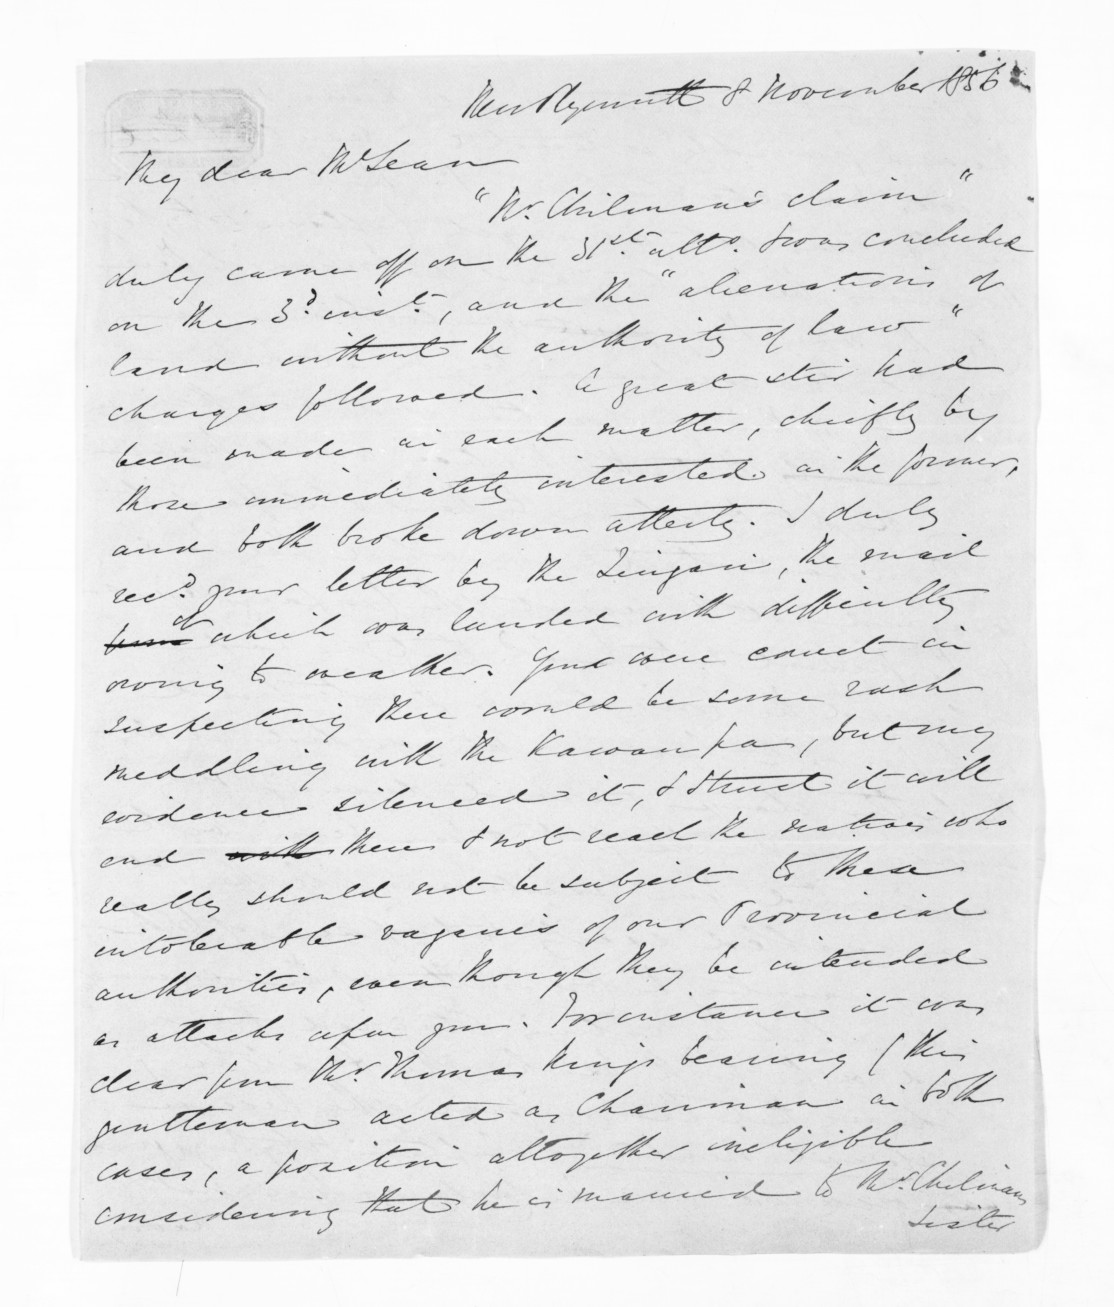 New Plymouth 8 November 1856
My dear McLean
"Mr. Chilman's claim"
duly came off on the 31st. ulto. & was concluded
on the 3d. inst., and the "alienations of
land without the authority of law"
charges followed. A great stir had
been made in each matter, chiefly by
those immediately interested in the former,
and both broke down utterly. I duly
recd. your letter by the Zingari, the mail
from of which was landed with difficulty
owing to weather. You were correct in
suspecting there would be some rash
meddling with the Kawau pa, but my
evidence silenced it, & I trust it will
end with there & not reach the natives who
really should not be subject to these
intolerable vagaries of our Provincial
authorities, even though they be intended
as attacks upon you. For instance it was
clear from Mr. Thomas King's bearing (this
gentleman acted as Chairman in both
cases, a position altogether ineligible
considering that he is married to Mr. Chilman's
sister